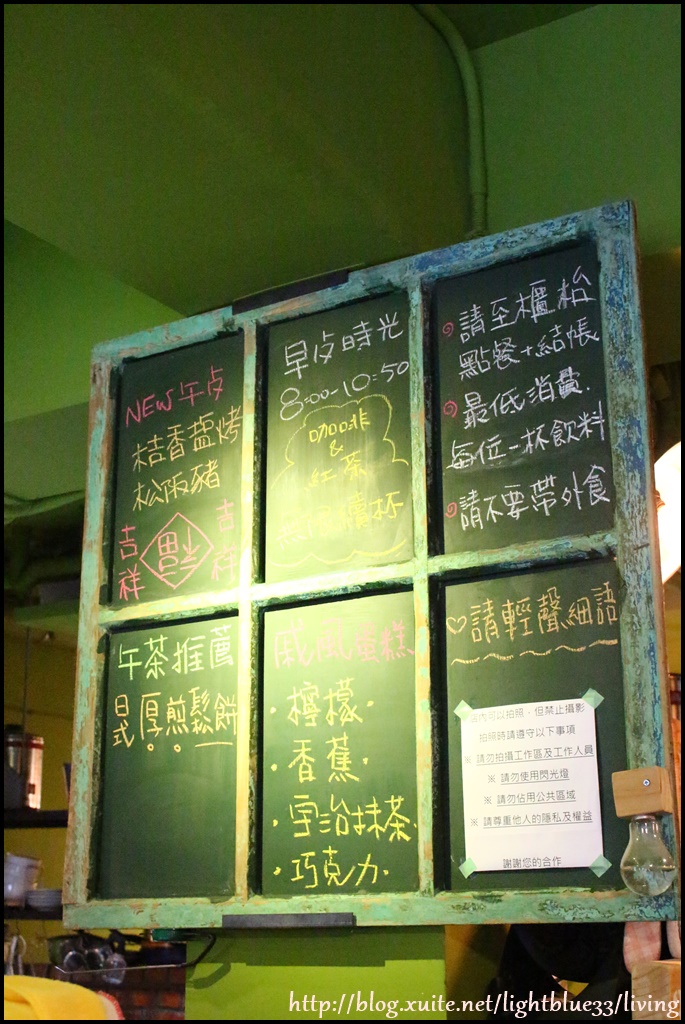 NEW 午皮
桔香鹽烤
松阪豬
吉祥
福
吉祥
早皮時光
8:00-10:50
咖啡
&
紅茶
續杯
請至櫃枱
點餐+結帳
最低消費.
每位一杯飲料
請不要帶外食
午茶推薦
日式厚煎鬆餅
戚風蛋糕
·檸檬·
·香蕉·
·宇治抹茶·
·巧克力·
♡請輕聲細語
店內可以拍照,但禁止攝影
拍照時請遵守以下事項
※ 請勿拍攝工作區及工作人員
※ 請勿使用閃光燈
※ 請勿佔用公共區域
※ 請尊重他人的隱私及權益
謝謝您的合作
http://blog.xuite.net/lightblue33/living